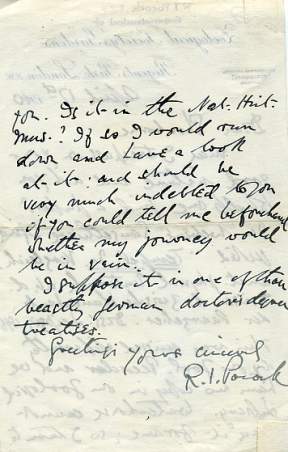 you. Is it in the Nat. Hist.
Mus.? If so I would run
down and have a look
at it. and should be
very much indebted to you
if you could tell me beforehand
whether my journey would
be in vain.
I suppose it in one of those
beastly German doctors degree
treatises.
Greetings yours sincerely
R. I. Pocock